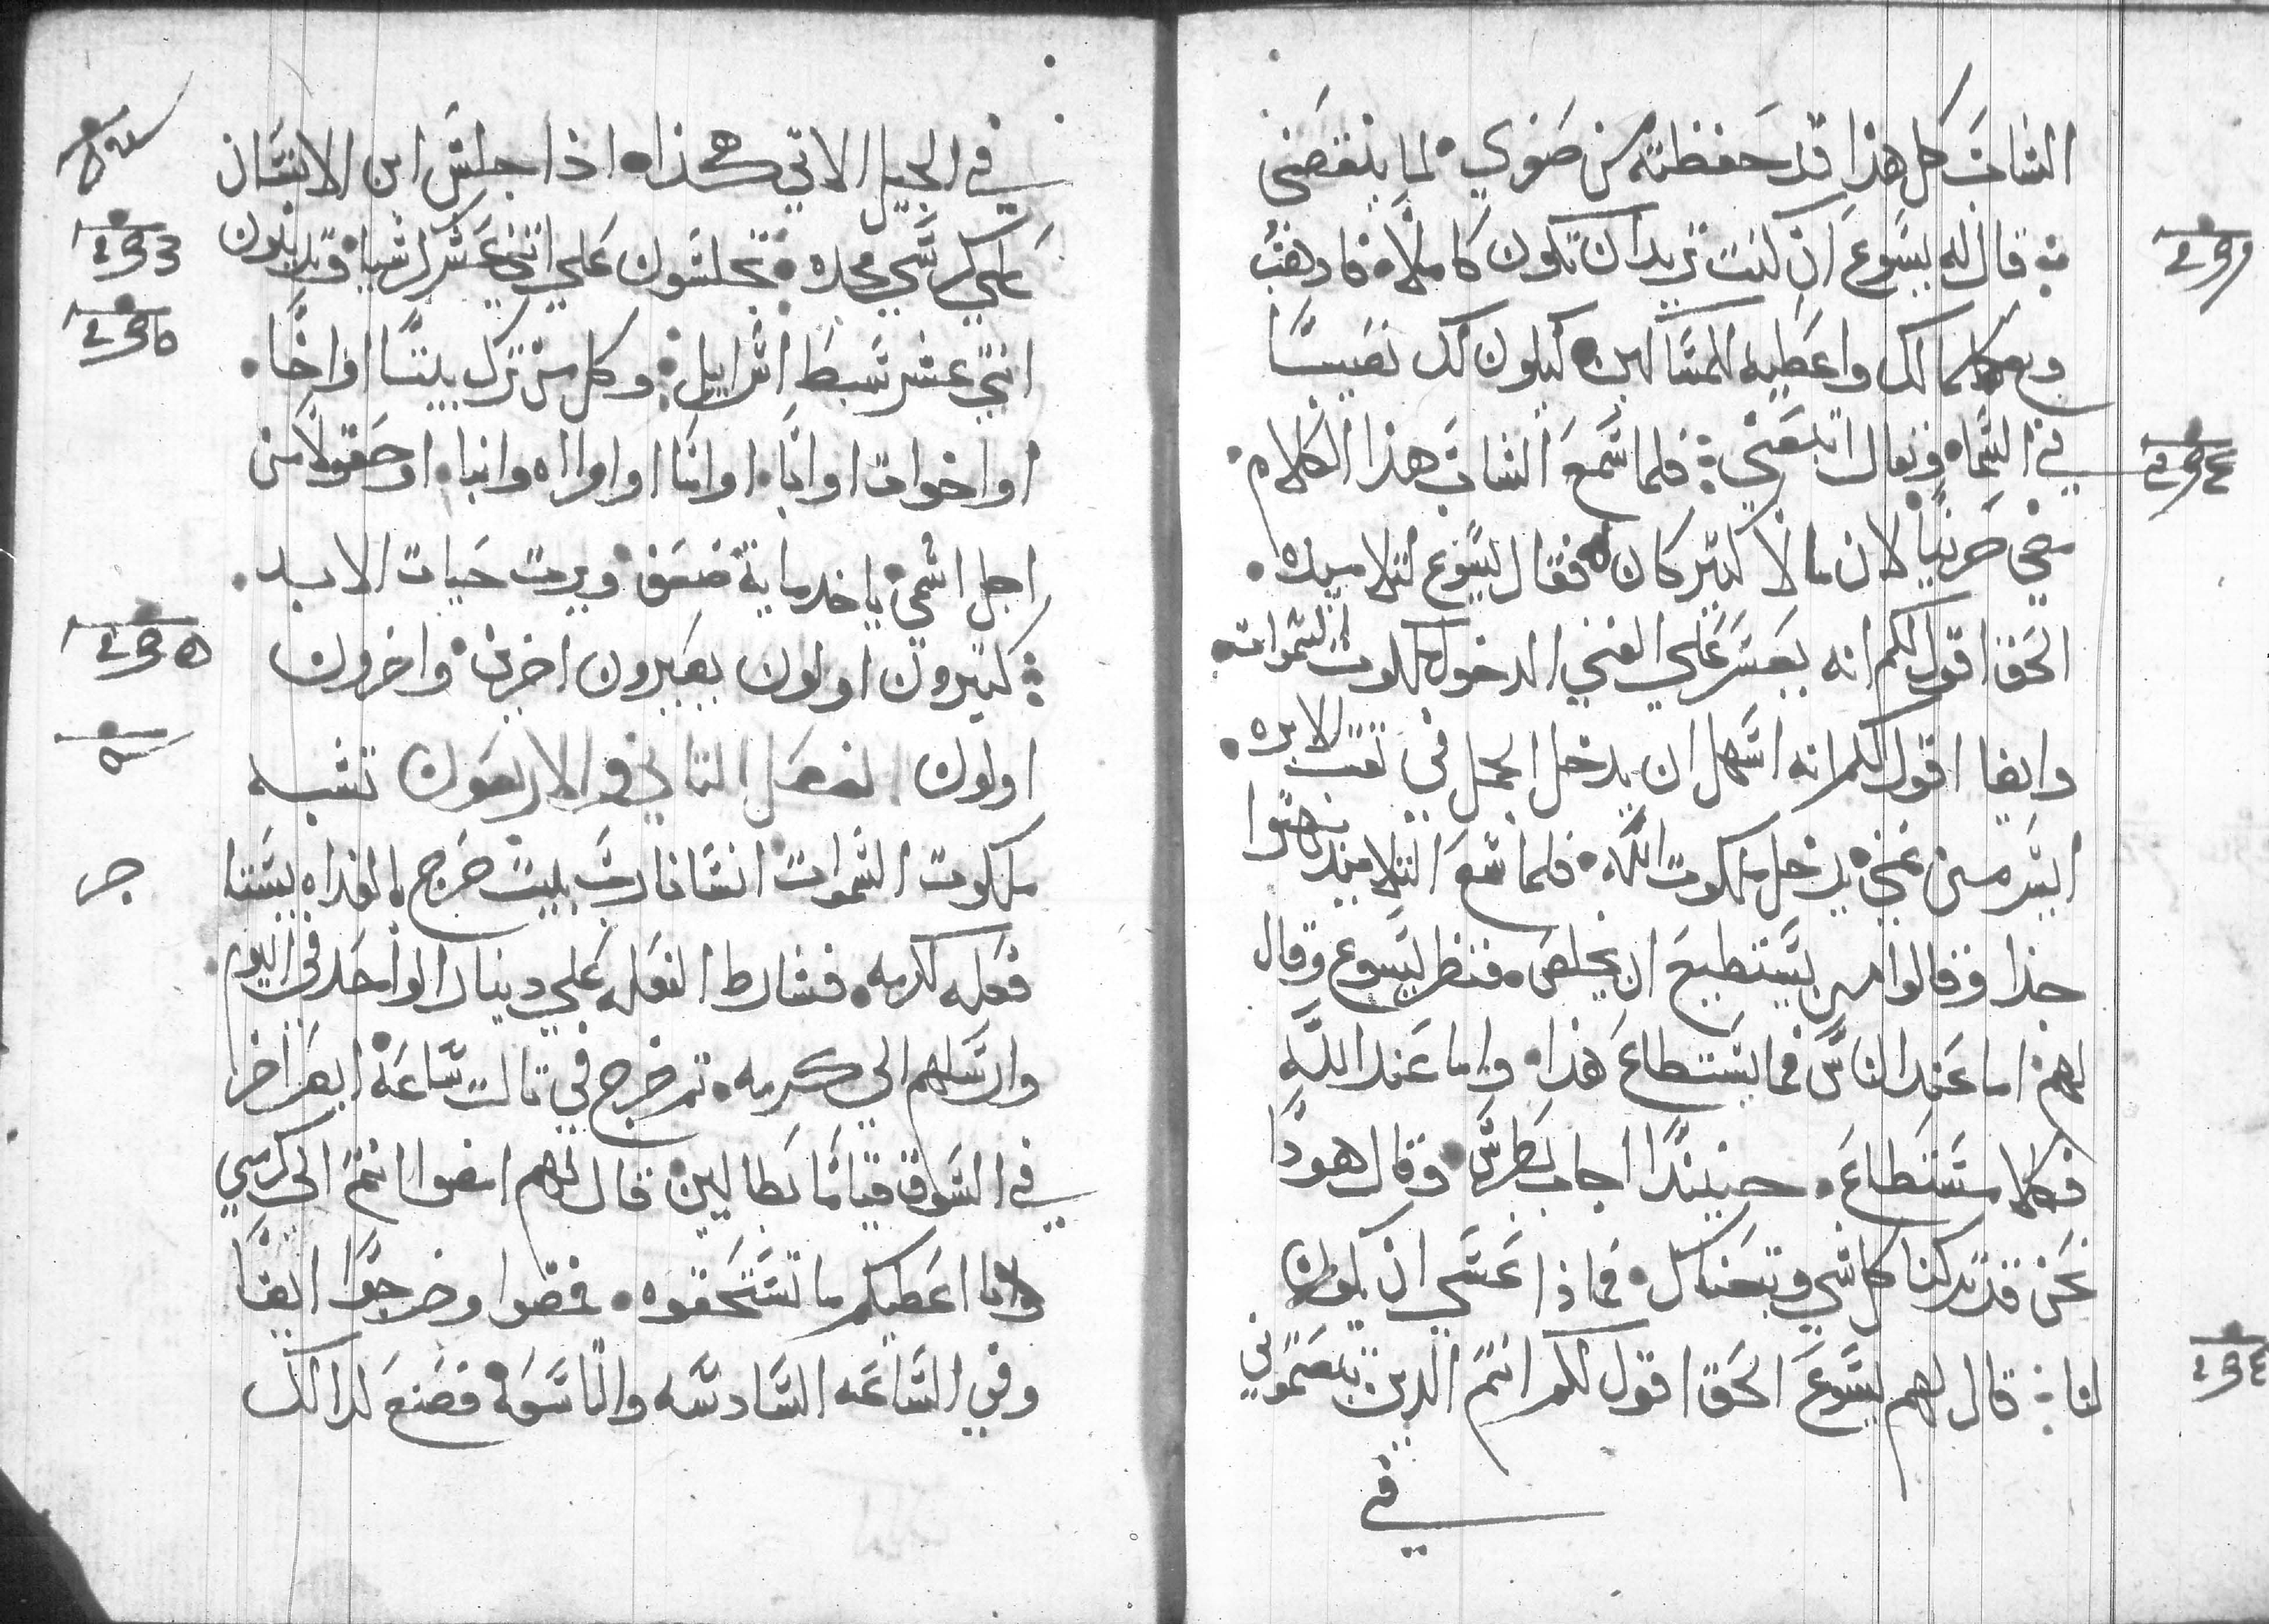 الشاب كل هذا قد حفظته من صغري لما ينقصني
قال له يسوع ان كنت تريد ان تكون كاملا فادهب
وبع كلما لك واعطيه للمساكين ليكون لك نصيبا
في السما وتعال اتبعني فلما سمع الشاب هذا الكلام
مضي حزينا لان مالا كتير كان له فقال يسوع لتلاميده
الحق اقول لكم انه يعسر علي الغني الدخول ملكوت السموات
وايضا اقول لكم انه اسهل ان يدخل الجمل في تقب الابره
ايسر من غني يدخل ملكوت الله فلما سمع التلاميد بهتوا
جدا وقالوا من يستطيع ان يخلص فنظر يسوع وقال
لهم اما عند الناس فما يستطاع هذا واما عند الله
فكلا مستطاع حينيدا اجاب بطرس وقال هودا
نحن قد تركنا كل شي وتبعناك فماذا عسي ان يكون
لنا قال لهم يسوع الحق اقول لكم انتم الدين تبعتموني
في
في الجيل الاتي هكذا اذا جلس ابن الانسان
علي كرسي مجده تجلسون علي اتني عشر كرسيا وتدينون
اتني عشر سبط اسراييل وكل من ترك بيتا او اخا
او اخوات او ابا او اما او اوراه وابنا او حقولا من
اجل اسمي ياخد ماية ضعف ويرت حيات الابد
كتيرون اولون يصيرون اخرين واخرون
اولون الفصل التاني والاربعون تشبه
ملكوت السموات انسانا رب بيت خرج بالغداه يستا
فعله لكرمه فشارط الفعله علي دينارا واحد في اليوم
وارسلهم الي كرمه تم خرج في تالت ساعة ابصر اخر
في السوق قياما بطالين قال لهم امضوا انتم الي كرمي
وانا اعطيكم ما تستحقوه فمضوا وخرج ايضا
وفي الساعه السادسه والتاسعة فصنع كدالك